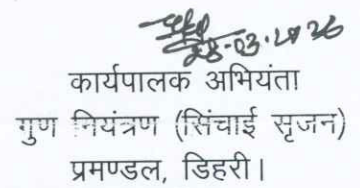 28-03-2026
कार्यपालक अभियंता
गुण नियंत्रण (सिंचाई सृजन)
प्रमण्डल, डिहरी।